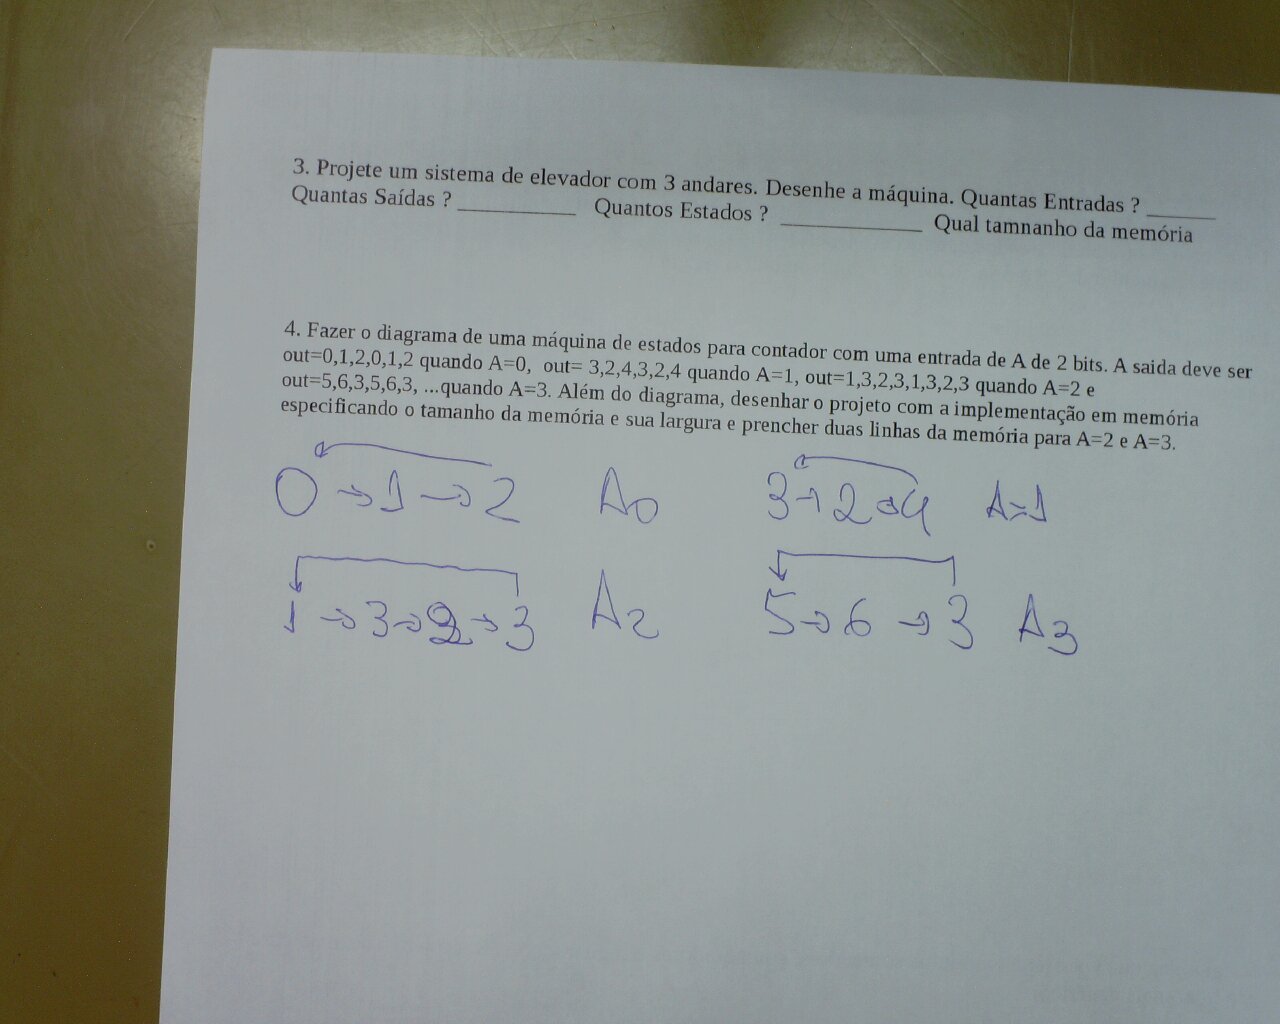 3. Projete um sistema de elevador com 3 andares. Desenhe a máquina. Quantas Entradas ? ______
Quantas Saídas ? __________ Quantos Estados ? ____________ Qual tamnanho da memória
4. Fazer o diagrama de uma máquina de estados para contador com uma entrada de A de 2 bits. A saida deve ser
out=0,1,2,0,1,2 quando A=0, out= 3,2,4,3,2,4 quando A=1, out=1,3,2,3,1,3,2,3 quando A=2 e
out=5,6,3,5,6,3, ...quando A=3. Além do diagrama, desenhar o projeto com a implementação em memória
especificando o tamanho da memória e sua largura e prencher duas linhas da memória para A=2 e A=3.
0 → 1 → 2 A0 3 → 2 → 4 A=1
1 → 3 → 2 → 3 A2 5 → 6 → 3 A3